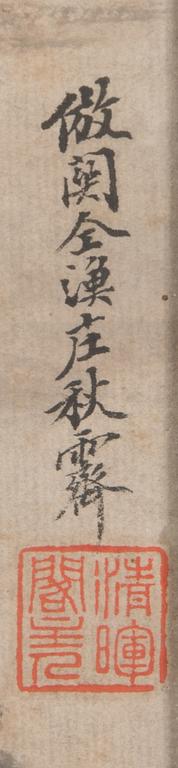 倣関仝漁庄秋霽
清暉
閣主人